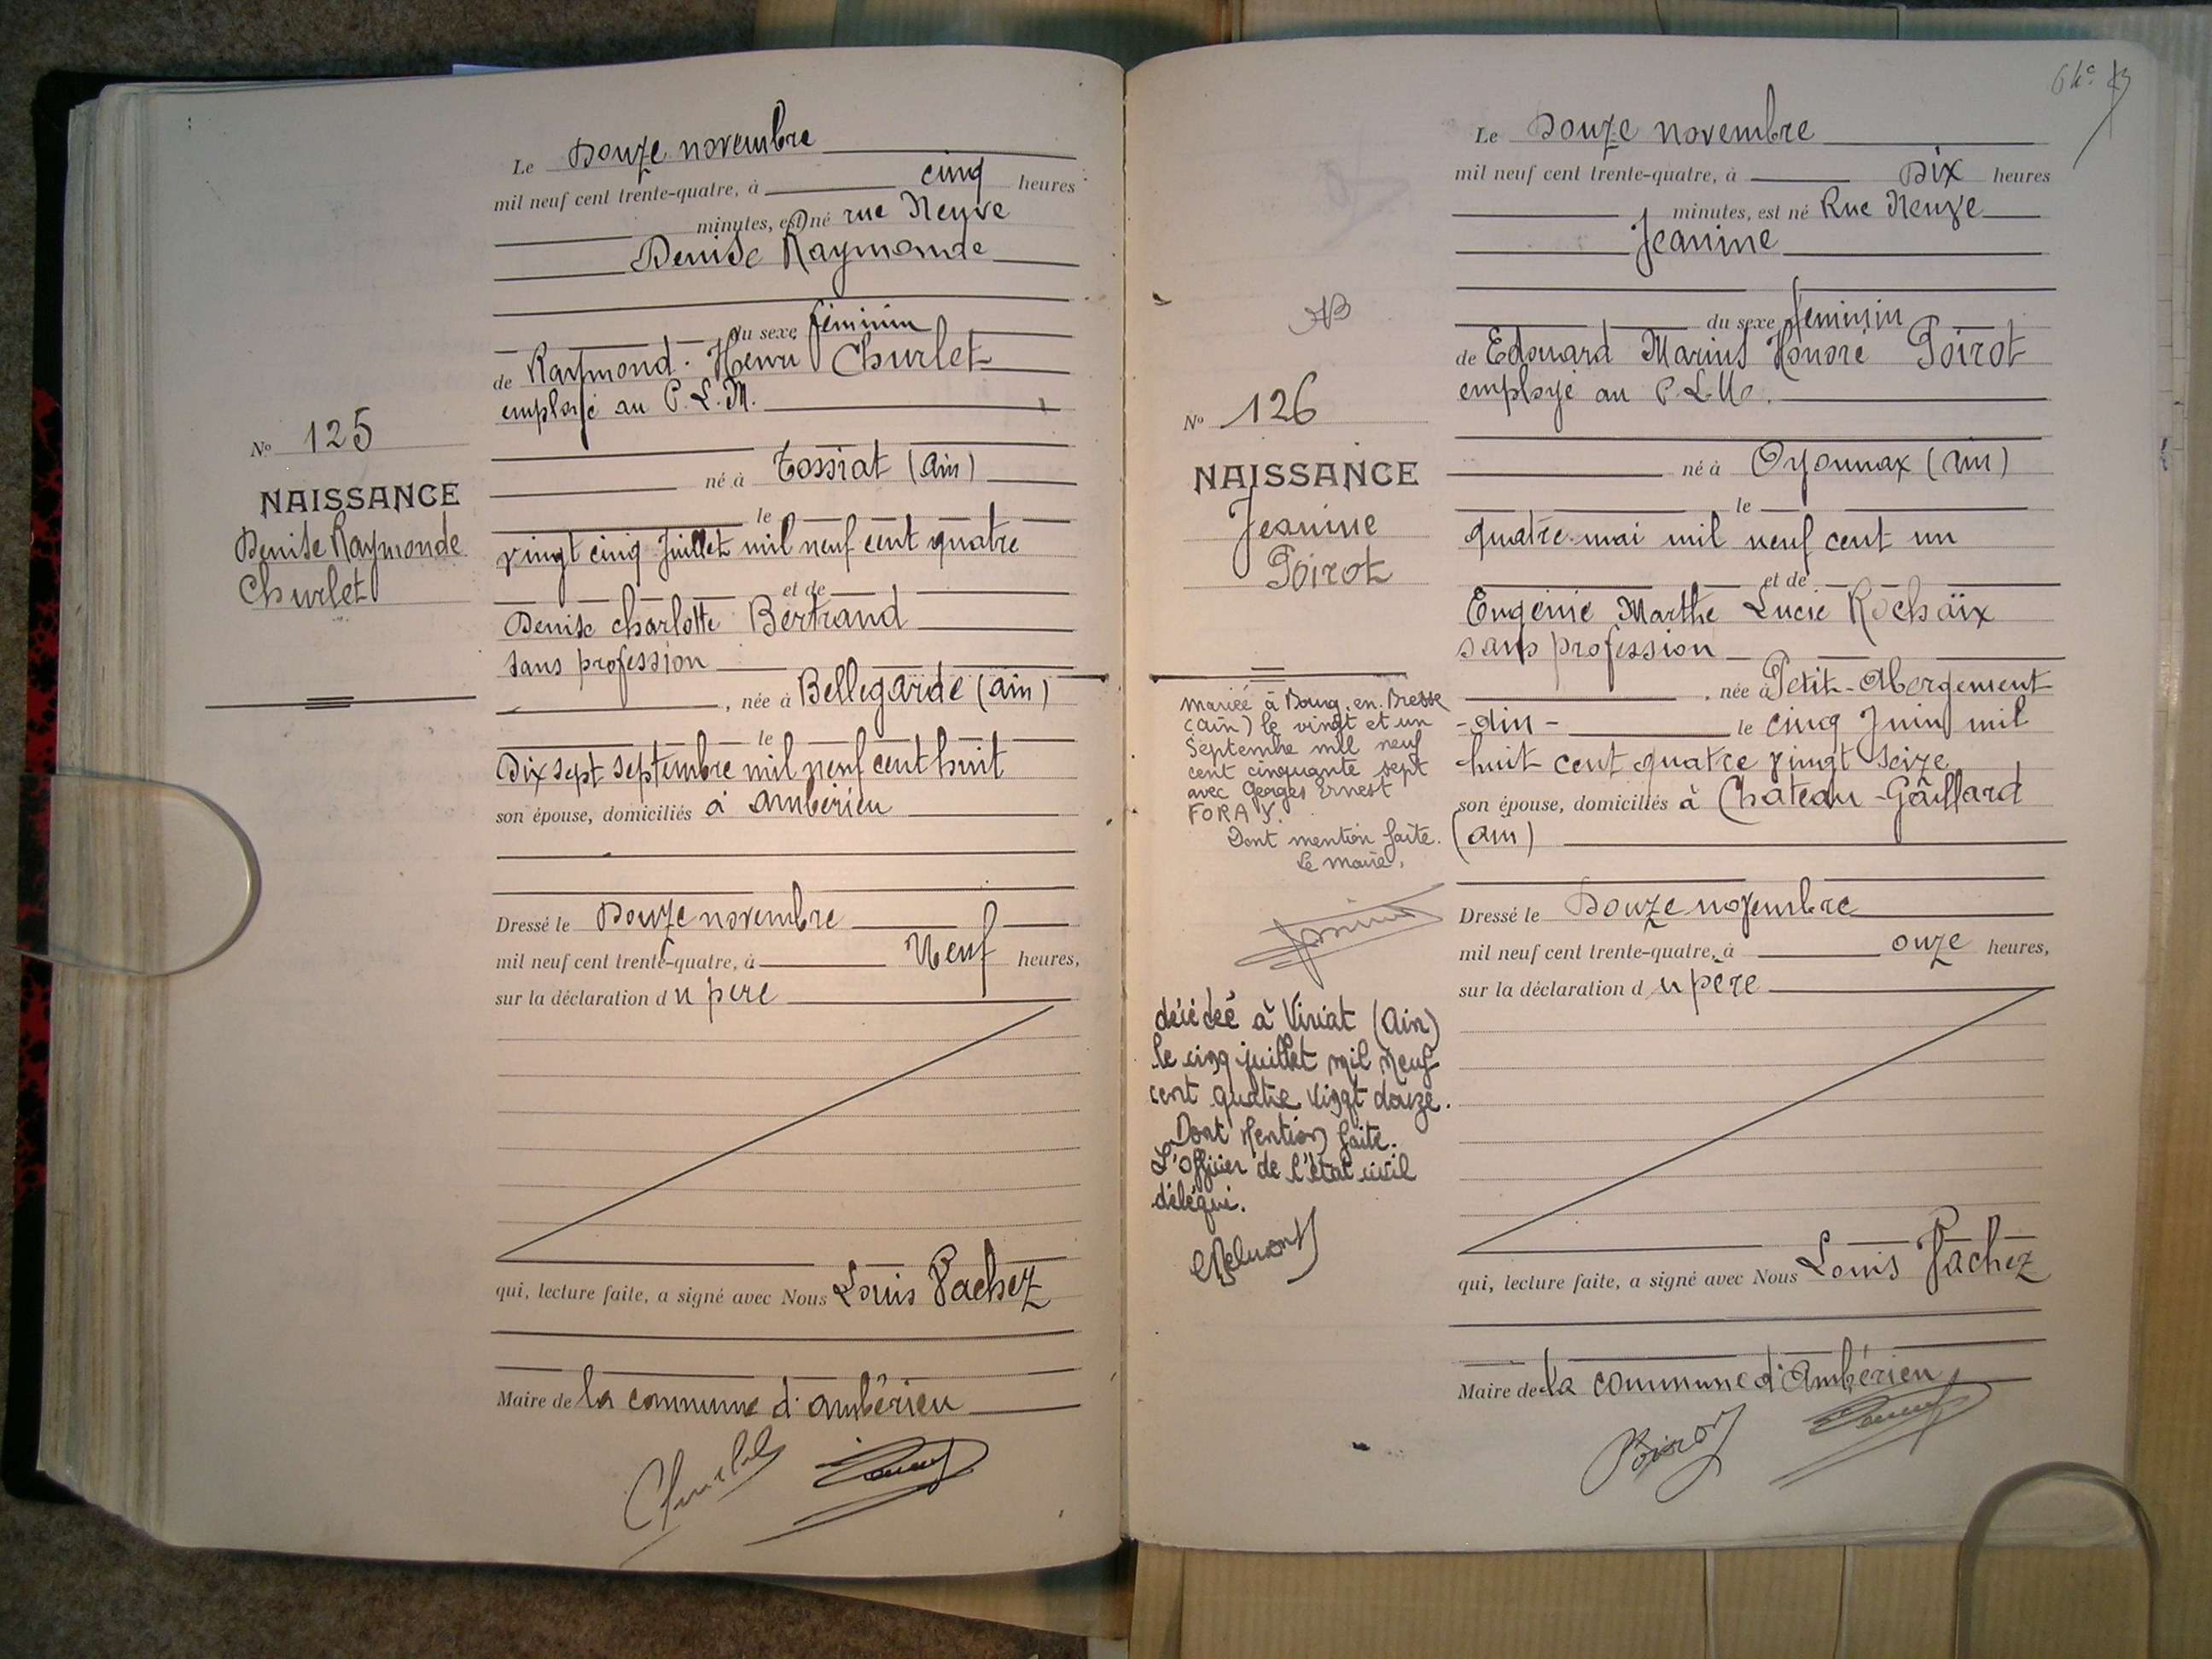 Le Douze novembre
mil neuf cent trente-quatre, à cinq heures
minutes, est né rue Neuve
Denise Raymonde
du sexe féminin
de Raymond Henri Churlet
employé au P.L.M.
né à Tossiat (Ain)
le
vingt cinq Juillet mil neuf cent quatre
et de
Denise charlotte Bertrand
sans profession
, née à Bellegarde (ain)
le
Dix sept septembre mil neuf cent huit
son épouse, domiciliés à ambérieu
Dressé le Douze novembre
mil neuf cent trente-quatre, à Neuf heures,
sur la déclaration du père
qui, lecture faite, a signé avec Nous Louis Pachez
Maire de la commune d'ambérieu
Churlet
No 125
NAISSANCE
Denise Raymonde
Churlet
Le Douze novembre
mil neuf cent trente-quatre, à Dix heures
minutes, est né Rue Neuve
Jeanine
du sexe féminin
de Edouard Marius Honoré Poirot
employé au P.L.M.
né à Oyonnax (Ain)
le
quatre mai mil neuf cent un
et de
Eugénie Marthe Lucie Rochaix
sans profession
, née à Petit-Abergement
-Ain- le cinq Juin mil
huit cent quatre vingt seize
son épouse, domiciliés à Château-Gaillard
(ain)
Dressé le Douze novembre
mil neuf cent trente-quatre, à onze heures,
sur la déclaration du père
qui, lecture faite, a signé avec Nous Louis Pachez
Maire de la commune d'Ambérieu
Poirot
No 126
NAISSANCE
Jeanine
Poirot
Mariée à Bourg.en.Bresse
(ain) le vingt et un
Septembre mil neuf
cent cinquante sept
avec Georges Ernest
FORAY.
Dont mention faite.
Le maire,
décédée à Viriat (Ain)
le cinq juillet mil neuf
cent quatre vingt douze.
Dont Mention faite.
L'Officier de l'état civil
délégué.